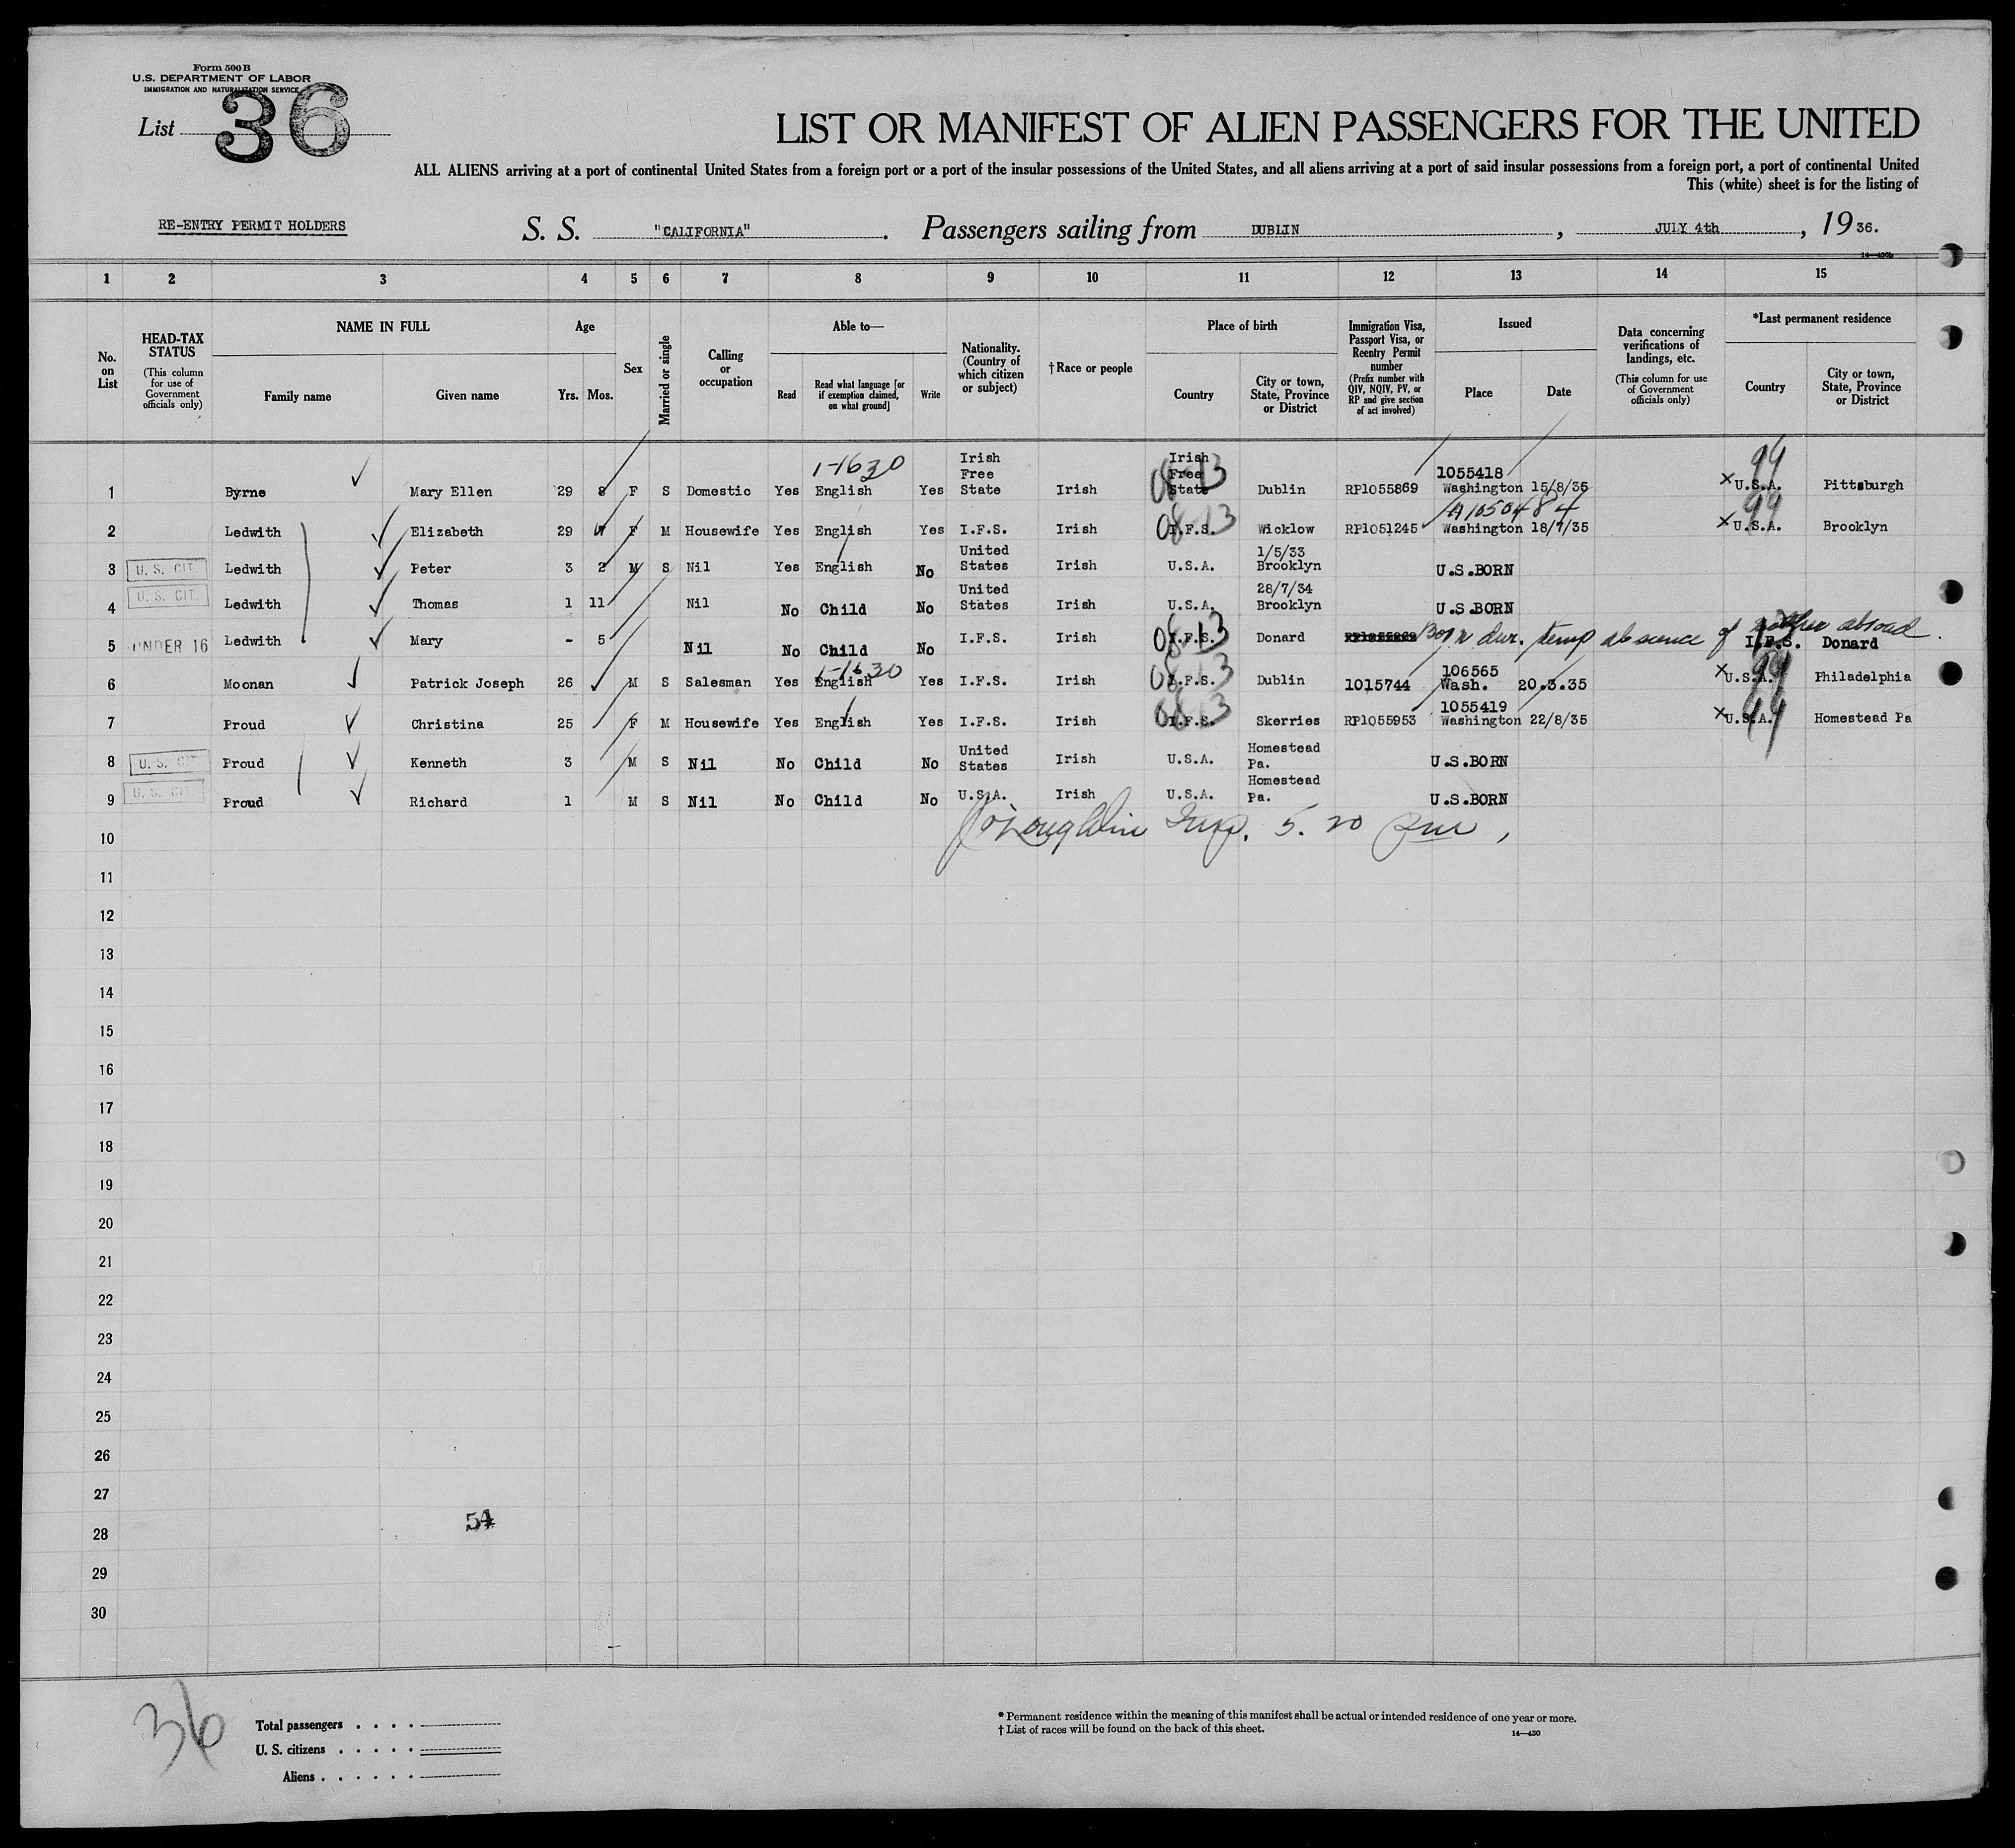 Form 500 B
U.S. DEPARTMENT OF LABOR
IMMIGRATION AND NATURALIZATION SERVICE
List 36
LIST OR MANIFEST OF ALIEN PASSENGERS FOR THE UNITED
ALL ALIENS arriving at a port of continental United States from a foreign port or a port of the insular possessions of the United States, and all aliens arriving at a port of said insular possessions from a foreign port, a port of continental United
This (white) sheet is for the listing of
RE-ENTRY PERMIT HOLDERS S. S. "CALIFORNIA". Passengers sailing from DUBLIN, JULY 4th, 1936.
14—430b
1 2 3 4 5 6 7 8 9 10 11 12 13 14 15
No. on List
HEAD-TAX STATUS (This column for use of Government officials only)
NAME IN FULL
Family name Given name
Age
Yrs. Mos.
Sex
Married or single
Calling or occupation
Able to—
Read Read what language [or if exemption claimed, on what ground] Write
Nationality. (Country of which citizen or subject)
† Race or people
Place of birth
Country City or town, State, Province or District
Immigration Visa, Passport Visa, or Reentry Permit number (Prefix number with QIV, NQIV, PV, or RP and give section of act involved)
Issued
Place Date
Data concerning verifications of landings, etc. (This column for use of Government officials only)
*Last permanent residence
Country City or town, State, Province or District
1-1630 08-13 1055418 99
1 Byrne Mary Ellen 29 8 F S Domestic Yes English Yes Irish Free State Irish Irish Free State Dublin RP1055869 Washington 15/8/35 x U.S.A. Pittsburgh
08-13 A1050484 99
2 Ledwith Elizabeth 29 F M Housewife Yes English Yes I.F.S. Irish I.F.S. Wicklow RP1051245 Washington 18/7/35 x U.S.A. Brooklyn
3 U. S. CIT. Ledwith Peter 3 2 M S Nil Yes English No United States Irish U.S.A. 1/5/33 Brooklyn U.S.BORN
4 U. S. CIT. Ledwith Thomas 1 11 Nil No Child No United States Irish U.S.A. 28/7/34 Brooklyn U.S.BORN
08-13 Born dur. temp absence of mother abroad.
5 UNDER 16 Ledwith Mary - 5 Nil No Child No I.F.S. Irish I.F.S. Donard I.F.S. Donard
1-1630 08-13 106565 99
6 Moonan Patrick Joseph 26 M S Salesman Yes English Yes I.F.S. Irish I.F.S. Dublin 1015744 Wash. 20.3.35 x U.S.A. Philadelphia
08-13 1055419 99
7 Proud Christina 25 F M Housewife Yes English Yes I.F.S. Irish I.F.S. Skerries RP1055953 Washington 22/8/35 x U.S.A. Homestead Pa
8 U. S. CIT Proud Kenneth 3 M S Nil No Child No United States Irish U.S.A. Homestead Pa. U.S.BORN
9 U. S. CIT. Proud Richard 1 M S Nil No Child No U.S.A. Irish U.S.A. Homestead Pa. U.S.BORN
10 O'Loughlin Insp. 5.20 pm,
11
12
13
14
15
16
17
18
19
20
21
22
23
24
25
26
27
28 54
29
30
36
Total passengers . . . .
U. S. citizens . . . . .
Aliens . . . . . .
* Permanent residence within the meaning of this manifest shall be actual or intended residence of one year or more.
† List of races will be found on the back of this sheet.
14—430